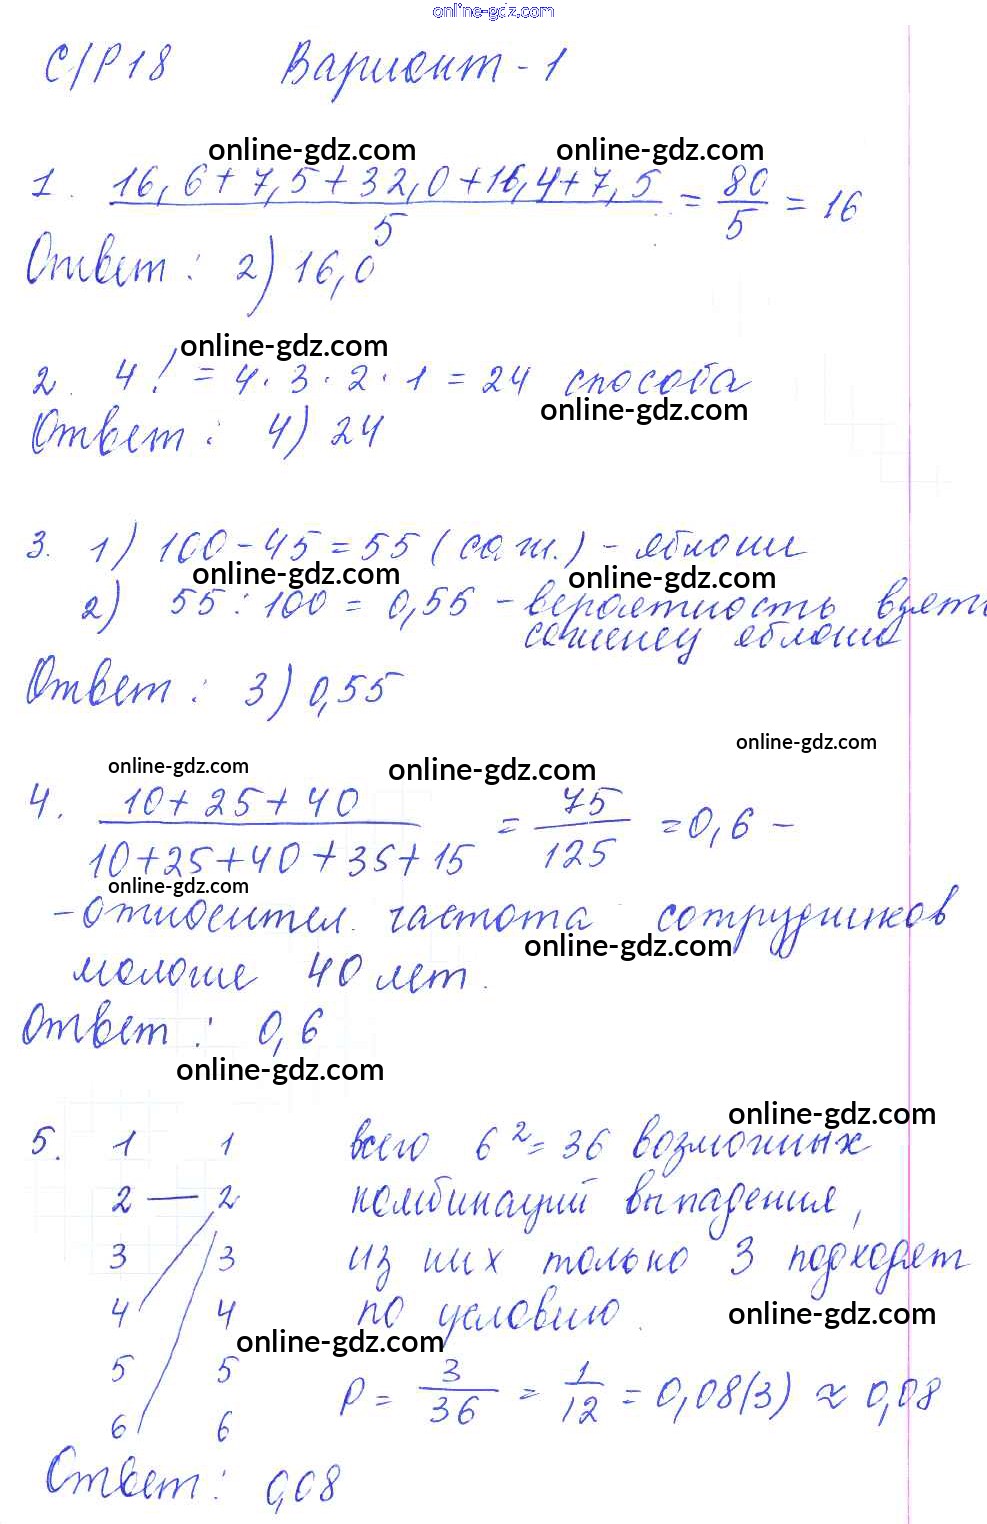 online-gdz.com
С/Р18 Вариант-1
online-gdz.com online-gdz.com
1. 16,6+7,5+32,0+16,4+7,5 / 5 = 80/5 = 16
Ответ: 2) 16,0
online-gdz.com
2. 4! = 4·3·2·1 = 24 способа
online-gdz.com
Ответ: 4) 24
3. 1) 100-45=55 (саж.) - яблони
online-gdz.com online-gdz.com
2) 55:100 = 0,55 - вероятность взять
саженец яблони
Ответ: 3) 0,55
online-gdz.com
online-gdz.com online-gdz.com
4. 10+25+40 / 10+25+40+35+15 = 75/125 = 0,6 -
online-gdz.com
- относител. частота сотрудников
online-gdz.com
моложе 40 лет.
Ответ: 0,6
online-gdz.com
online-gdz.com
5. 1 1 всего 6²=36 возможных
2 — 2 комбинаций выпадения,
3 3 из них только 3 подходят
4 4 по условию.
online-gdz.com
online-gdz.com
5 5 P = 3/36 = 1/12 = 0,08(3) ≈ 0,08
6 6
Ответ: 0,08